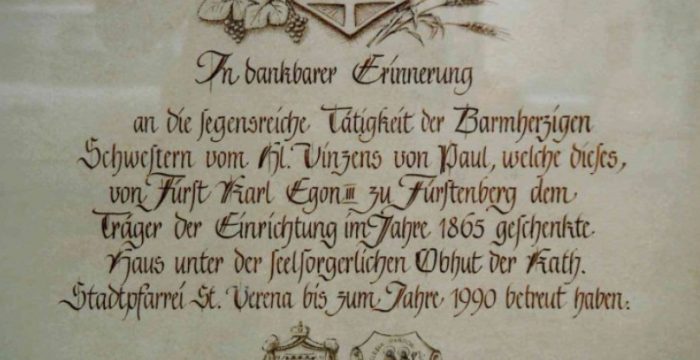 In dankbarer Erinnerung
an die segensreiche Tätigkeit der Barmherzigen
Schwestern vom Hl. Vinzens von Paul, welche dieses,
von Fürst Karl Egon III zu Fürstenberg dem
Träger der Einrichtung im Jahre 1865 geschenkte
Haus unter der seelsorgerlichen Obhut der Kath.
Stadtpfarrei St. Verena bis zum Jahre 1990 betreut haben: